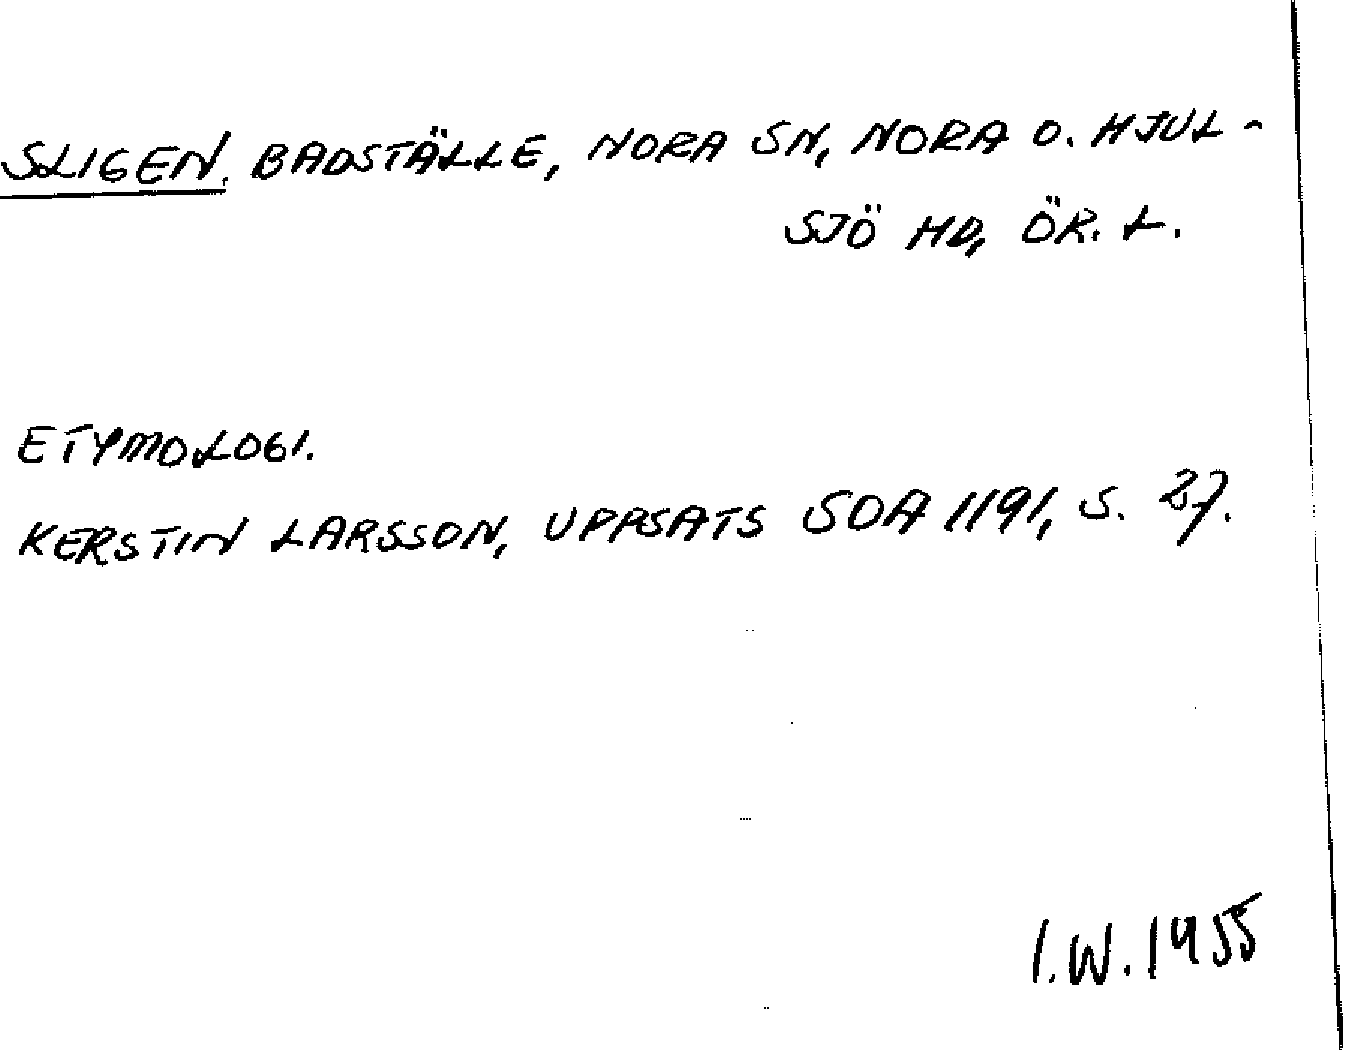 SLIGEN. BADSTÄLLE, NORA SN, NORA O. HJUL-
SJÖ HD, ÖR. L.
ETYMOLOGI.
KERSTIN LARSSON, UPPSATS SOA 1191, S. 27.
I.W. 1955